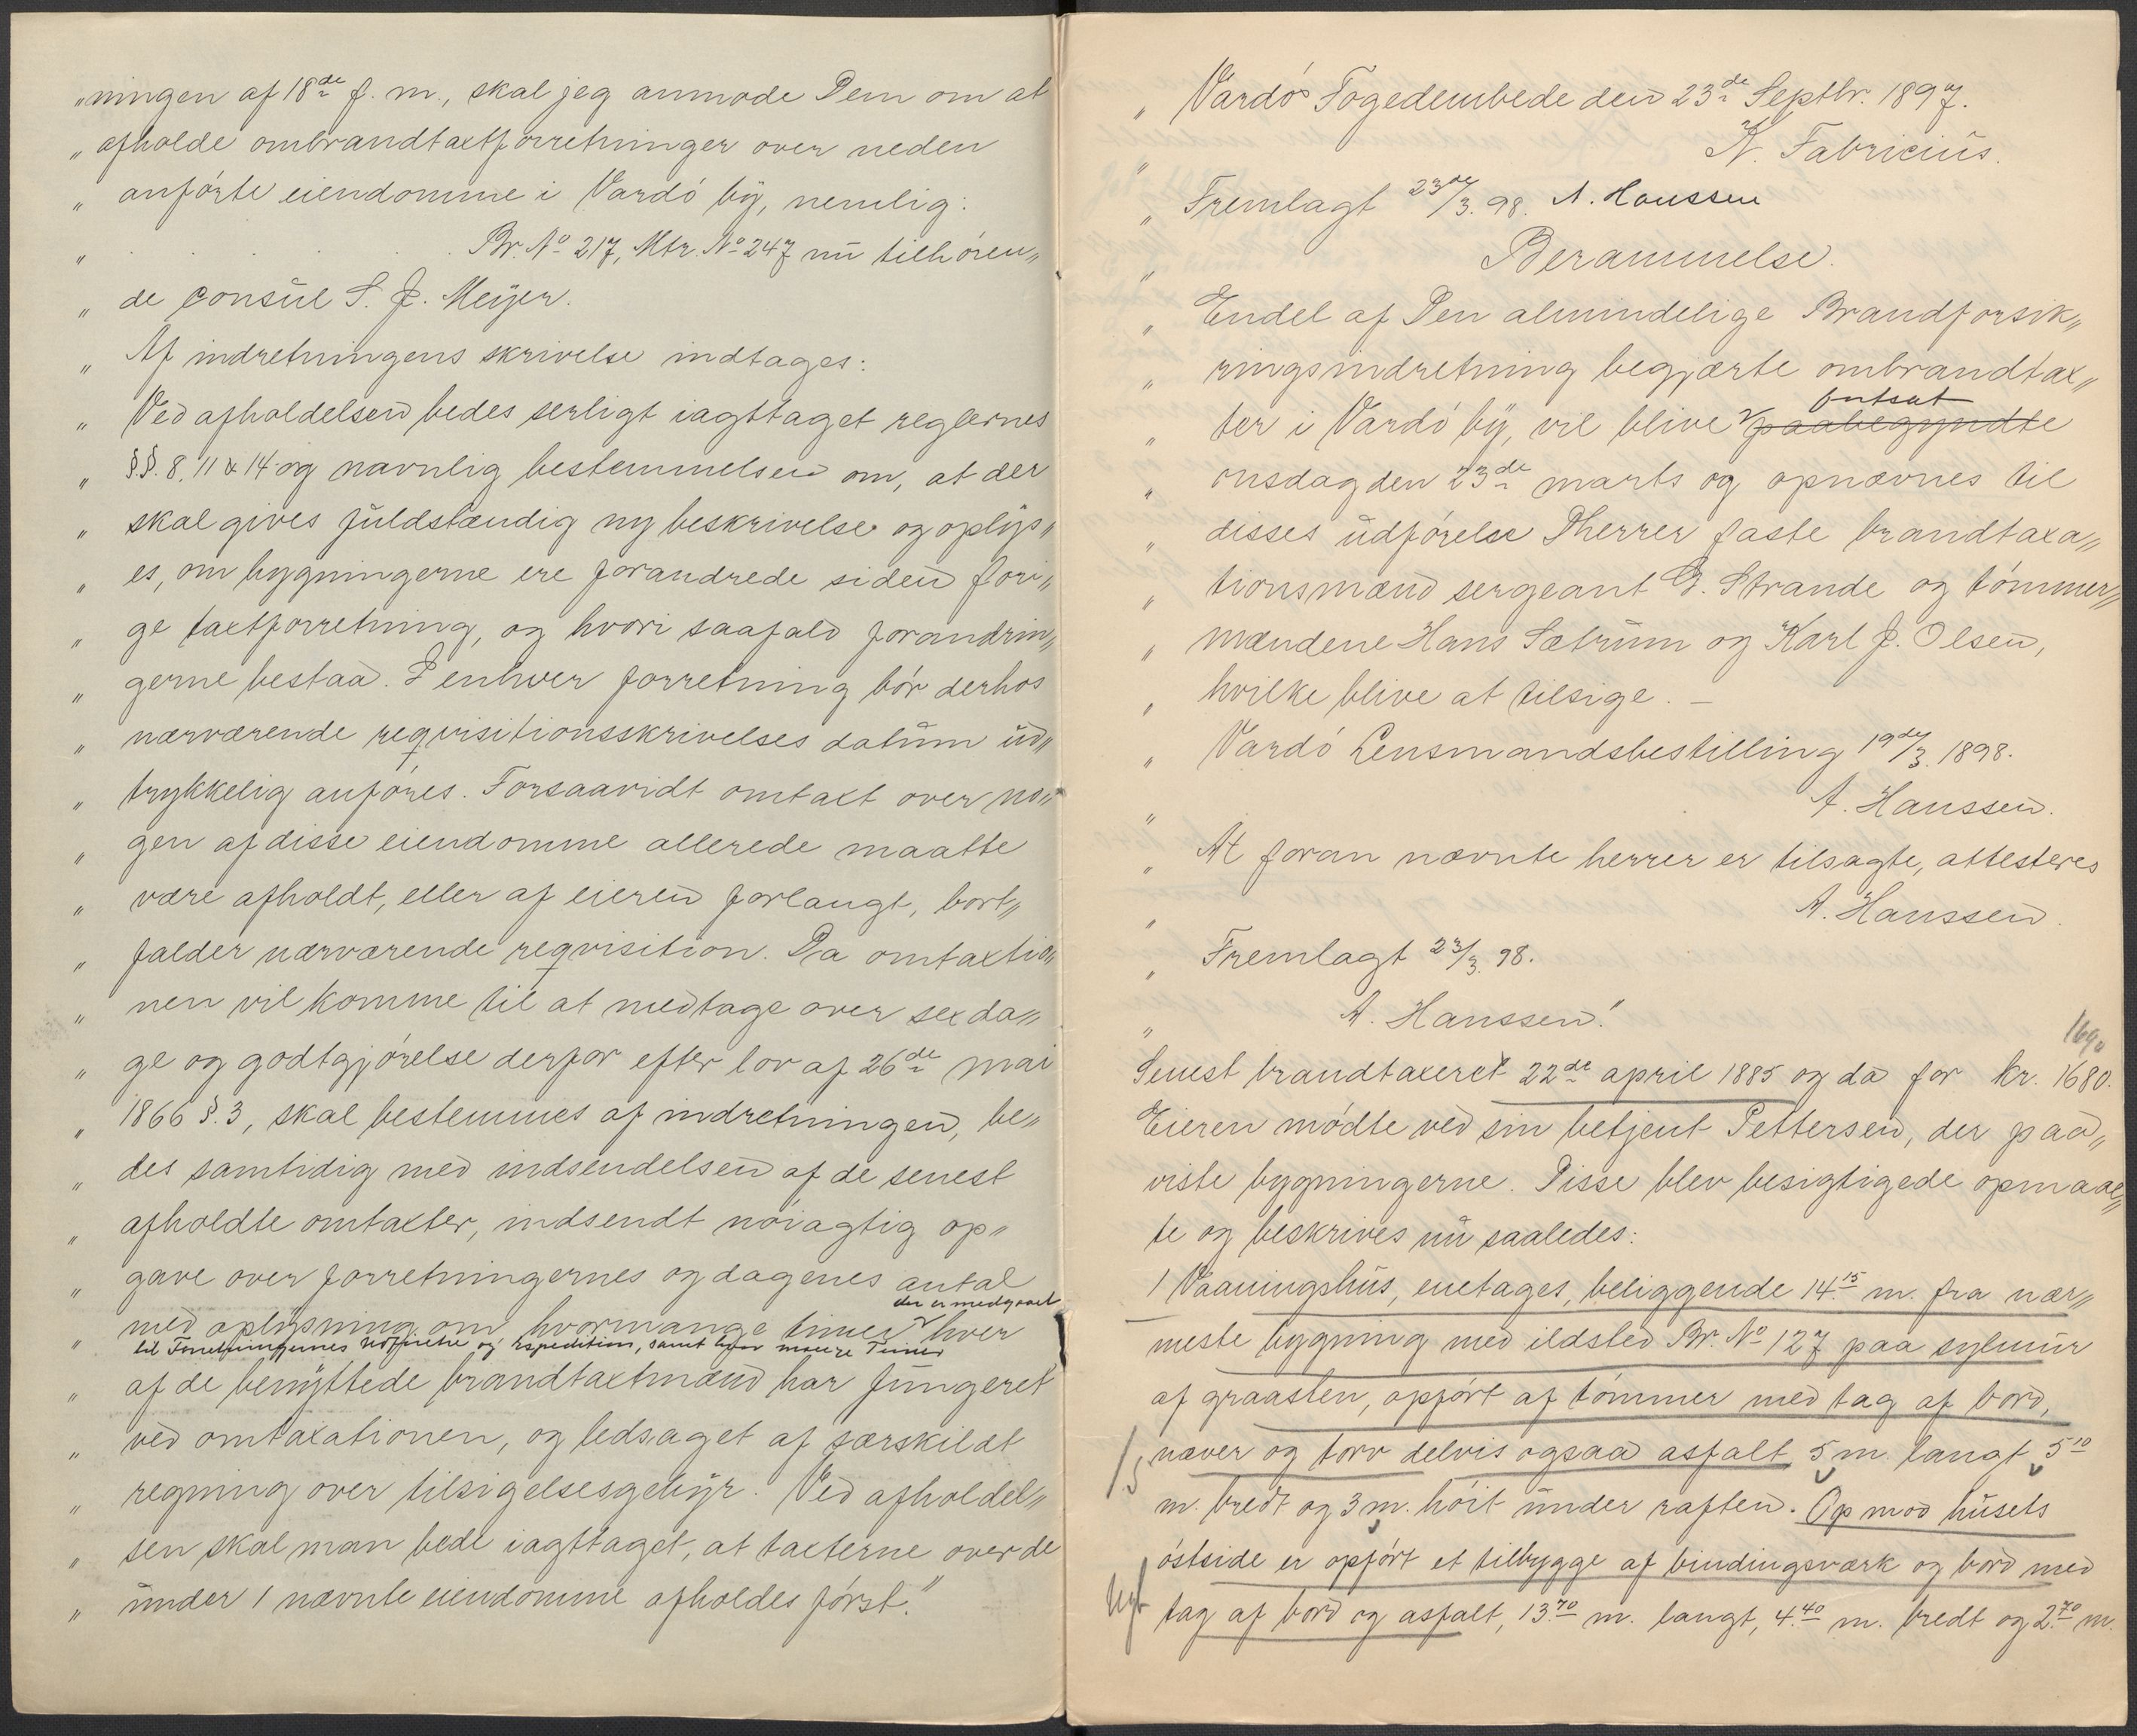 „ningen af 18de f. m., skal jeg anmode Dem om at
„ afholde ombrandtaxtforretninger over neden
„ anförte eiendomme i Vardö by, nemlig:
„ Br. No 217, Mtr. No 247 nu tilhören„
„ de consul S. J. Meyer.
„ Af indretningens skrivelse indtages:
„ Ved afholdelsen bedes serligt iagttaget reglernes
„ §§. 8, 11 & 14 og navnlig bestemmelsen om, at der
„ skal gives fuldstændig ny beskrivelse og oplys„
„ es, om bygningerne ere forandrede siden fori„
„ ge taxtforretning, og hvori saafald forandrin„
„ gerne bestaa. I enhver forretning bör derhos
„ nærværende reqvisitionsskrivelses datum ud„
„ trykkelig anföres. Forsaavidt omtaxt over no„
„ gen af disse eiendomme allerede maatte
„ være afholdt, eller af eieren forlangt, bort„
„ falder nærværende reqvisition. Da omtaxtio„
„ nen vil komme til at medtage over sex da„
„ ge og godtgjörelse derfor efter lov af 26de mai
„ 1866 §. 3, skal bestemmes af indretningen, be„
„ des samtidig med indsendelsen af de senest
„ afholdte omtaxter, indsendt nöiagtig op„
„ gave over forretningernes og dagenes antal
der er medgaaet
„ med oplysning om hvormange timer hver
til Forretningernes Udförelse og Expedition, samt hvor mange Timer
„ af de benyttede brandtaxtmænd har fungeret
„ ved omtaxationen, og ledsaget af særskildt
„ regning over tilsigelsesgebyr. Ved afholdel„
„ sen skal man bede iagttaget, at taxterne over de
„ under 1 nævnte eiendomme afholdes först."
„ Vardö Fogedembede den 23de Septbr. 1897.
„ N. Fabricius.
„ Fremlagt 23de/3. 98. A. Hanssen
„ Berammelse.
„ Endel af Den almindelige Brandforsik„
„ ringsindretning begjærte ombrandtax„
fortsat
„ ter i Vardö by, vil blive paabegyndte
„ onsdag den 23de marts og opnævnes til
„ disses udförelse Dherrer faste brandtaxa„
„ tionsmænd sergeant G. Strande og tömmer„
„ mændene Hans Sætrum og Karl J. Olsen,
„ hvilke blive at tilsige. –
„ Vardö Lensmandsbestilling 19de/3. 1898.
„ A. Hanssen.
„ At foran nævnte herrer er tilsagte, attesteres
„ A. Hanssen.
„ Fremlagt 23/3. 98.
„ A. Hanssen."
1690
Senest brandtaxeret 22de april 1885 og da for kr. 1680.
Eieren mödte ved sin betjent Pettersen, der paa„
viste bygningerne. Disse blev besigtigede opmaal„
te og beskrives nu saaledes:
1 Vaaningshus, enetages, beliggende 14.15 m. fra nær„
meste bygning med ildsted Br. No 127 paa sylmur
af graasten, opfört af tömmer med tag af bord,
næver og torv delvis ogsaa asfalt, 5 m. langt, 5.10
m. bredt og 3 m. höit under raften. Op mod husets
östside er opfört et tilbygge af bindingsværk og bord med
tag af bord og asfalt, 13.70 m. langt, 4.40 m. bredt og 2.70 m.